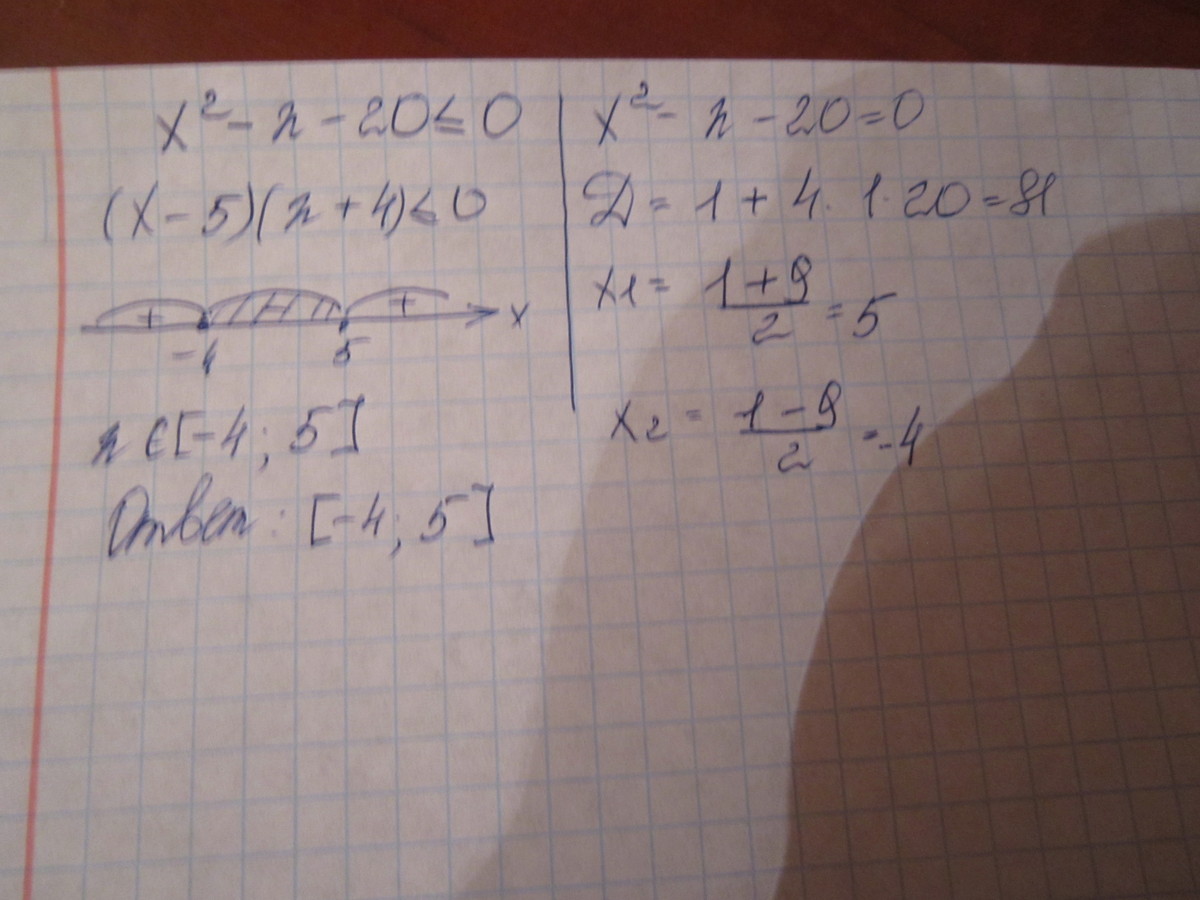 x² - x - 20 ≤ 0
(x - 5)(x + 4) ≤ 0
+ - + x
-4 5
x ∈ [-4; 5]
Ответ: [-4; 5]
x² - x - 20 = 0
D = 1 + 4 · 1 · 20 = 81
x1 = (1 + 9)/2 = 5
x2 = (1 - 9)/2 = -4